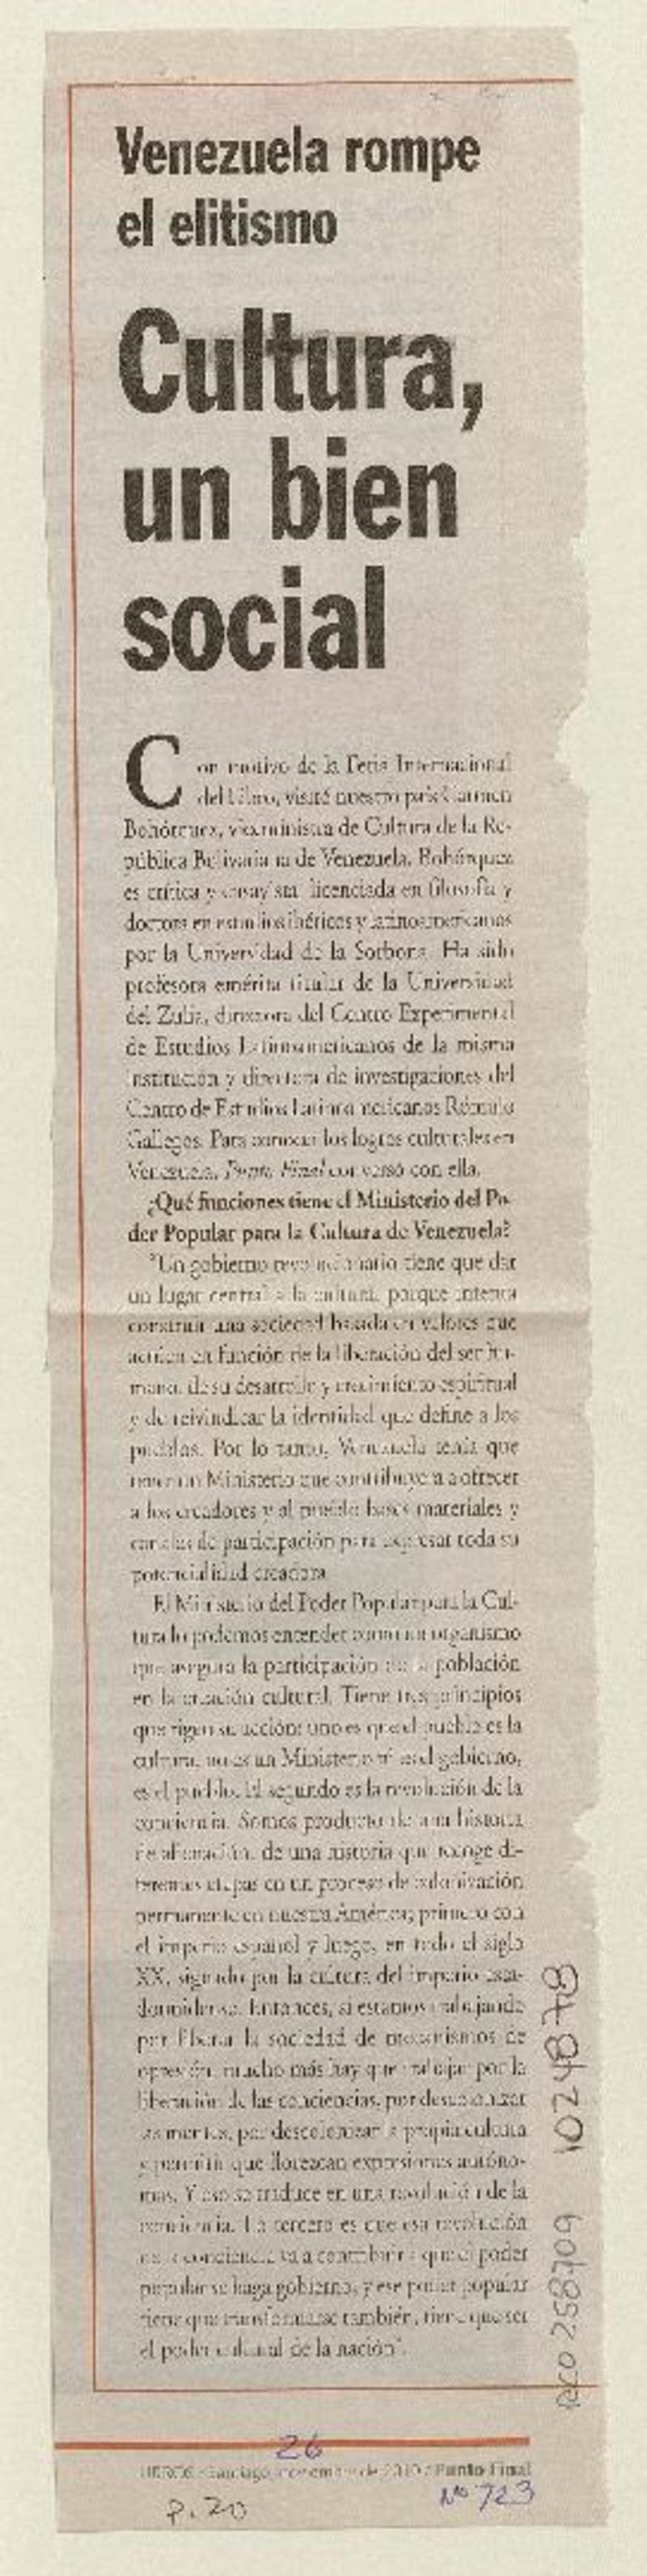 Venezuela rompe
el elitismo
Cultura,
un bien
social
Con motivo de la Feria Internacional
del Libro, visitó nuestro país Carmen
Bohórquez, viceministra de Cultura de la Re-
pública Bolivariana de Venezuela. Bohórquez
es crítica y ensayista, licenciada en filosofía y
doctora en estudios ibéricos y latinoamericanos
por la Universidad de la Sorbona. Ha sido
profesora emérita titular de la Universidad
del Zulia, directora del Centro Experimental
de Estudios Latinoamericanos de la misma
institución y directora de investigaciones del
Centro de Estudios Latinoamericanos Rómulo
Gallegos. Para conocer los logros culturales en
Venezuela, Punto Final conversó con ella.
¿Qué funciones tiene el Ministerio del Po-
der Popular para la Cultura de Venezuela?
"Un gobierno revolucionario tiene que dar
un lugar central a la cultura, porque intenta
construir una sociedad basada en valores que
actúen en función de la liberación del ser hu-
mano, de su desarrollo y crecimiento espiritual
y de reivindicar la identidad que define a los
pueblos. Por lo tanto, Venezuela tenía que
tener un Ministerio que contribuyera a ofrecer
a los creadores y al pueblo bases materiales y
canales de participación para expresar toda su
potencialidad creadora.
El Ministerio del Poder Popular para la Cul-
tura lo podemos entender como un organismo
que asegura la participación de la población
en la creación cultural. Tiene tres principios
que rigen su acción: uno es que el pueblo es la
cultura, no es un Ministerio ni es el gobierno,
es el pueblo. El segundo es la revolución de la
conciencia. Somos producto de una historia
de alienación, de una historia que recoge di-
ferentes etapas en un proceso de colonización
permanente en nuestra América; primero con
el imperio español y luego, en todo el siglo
XX, signado por la cultura del imperio esta-
dounidense. Entonces, si estamos trabajando
por liberar la sociedad de mecanismos de
opresión, mucho más hay que trabajar por la
liberación de las conciencias, por descolonizar
las mentes, por descolonizar la propia cultura
y permitir que florezcan expresiones autóno-
mas. Y eso se traduce en una revolución de la
conciencia. Lo tercero es que esa revolución
de la conciencia va a contribuir a que el poder
popular se haga gobierno, y ese poder popular
tiene que transformarse también, tiene que ser
el poder cultural de la nación".
26
Santiago, de 2010 / Punto Final
P. 20
Nº 723
258709 1024878